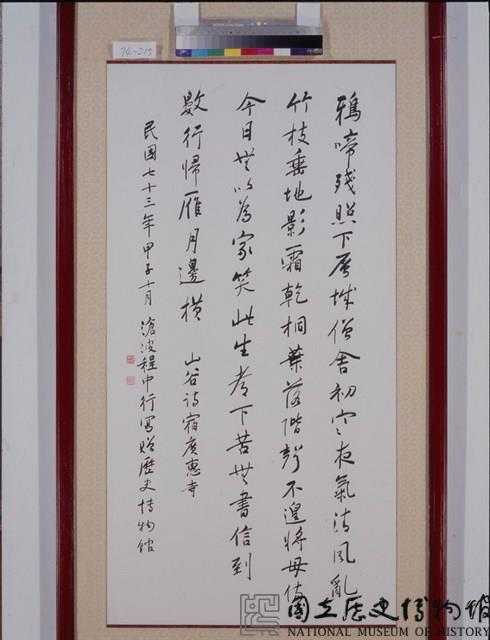 74-215
鴉啼殘照下層城僧舍初寒夜氣清風亂
竹枝垂地影霜乾桐葉落階聲不遑將母傷
今日無以為家笑此生都下苦無書信到
數行歸雁月邊橫 山谷詩宿廣惠寺
民國七十三年甲子十月 滄波程中行寫贈歷史博物館
國立歷史博物館
NATIONAL MUSEUM OF HISTORY